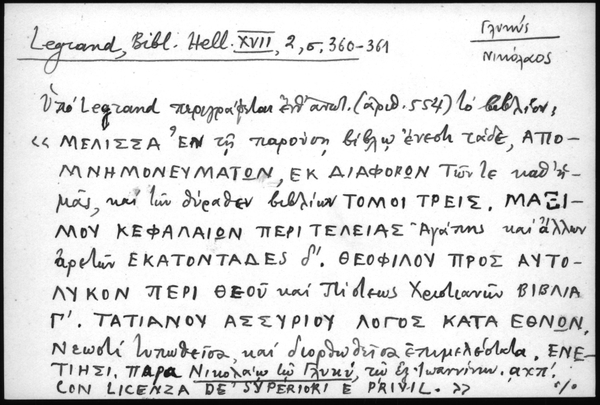 Γλυκύς
Νικόλαος
Legrand, Bibl. Hell. XVII, 2, σ. 360-361
Ὑπό Legrand περιγράφεται ἐνθ' ἀνωτ. (ἀριθ. 554) τό βιβλίον:
«ΜΕΛΙΣΣΑ Ἐν τῇ παρούσῃ βίβλῳ ἔνεστι τάδε, ΑΠΟ-
ΜΝΗΜΟΝΕΥΜΑΤΩΝ, ΕΚ ΔΙΑΦΟΡΩΝ τῶν τε καθ' ἡ-
μᾶς, καί τῶν θύραθεν βιβλίων ΤΟΜΟΙ ΤΡΕΙΣ. ΜΑΞΙ-
ΜΟΥ ΚΕΦΑΛΑΙΩΝ ΠΕΡΙ ΤΕΛΕΙΑΣ Ἀγάπης καί ἄλλων
ἀρετῶν ΕΚΑΤΟΝΤΑΔΕΣ δ'. ΘΕΟΦΙΛΟΥ ΠΡΟΣ ΑΥΤΟ-
ΛΥΚΟΝ ΠΕΡΙ ΘΕΟΥ καί Πίστεως Χριστιανῶν ΒΙΒΛΙΑ
Γ'. ΤΑΤΙΑΝΟΥ ΑΣΣΥΡΙΟΥ ΛΟΓΟΣ ΚΑΤΑ ΕΘΝΩΝ.
Νεωστί τυπωθεῖσα, καί διορθωθεῖσα ἐπιμελέστατα. ΕΝΕ-
ΤΙΗΣΙ. παρα Νικολάῳ τῷ Γλυκύ, τῷ ἐξ Ἰωαννίνων. αχπ'.
CON LICENZA DE' SUPERIORI E PRIVIL.»
%